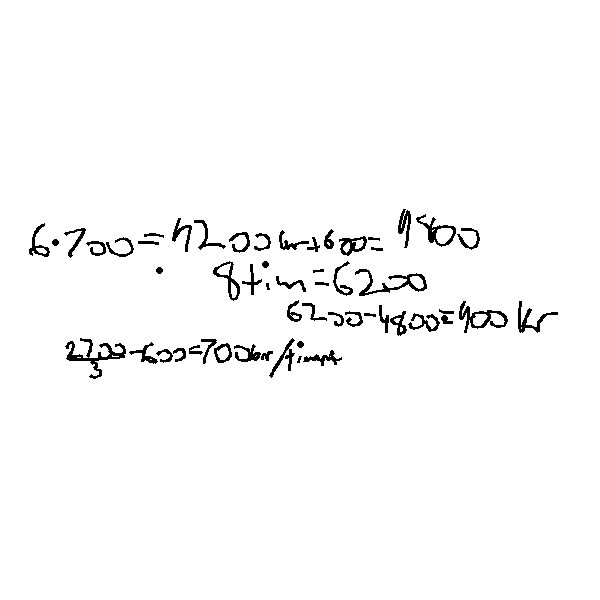 6·700=4200kr+600=4800
8tim=6200
6200-4800=400 kr
2700/3-600=700kr/timme